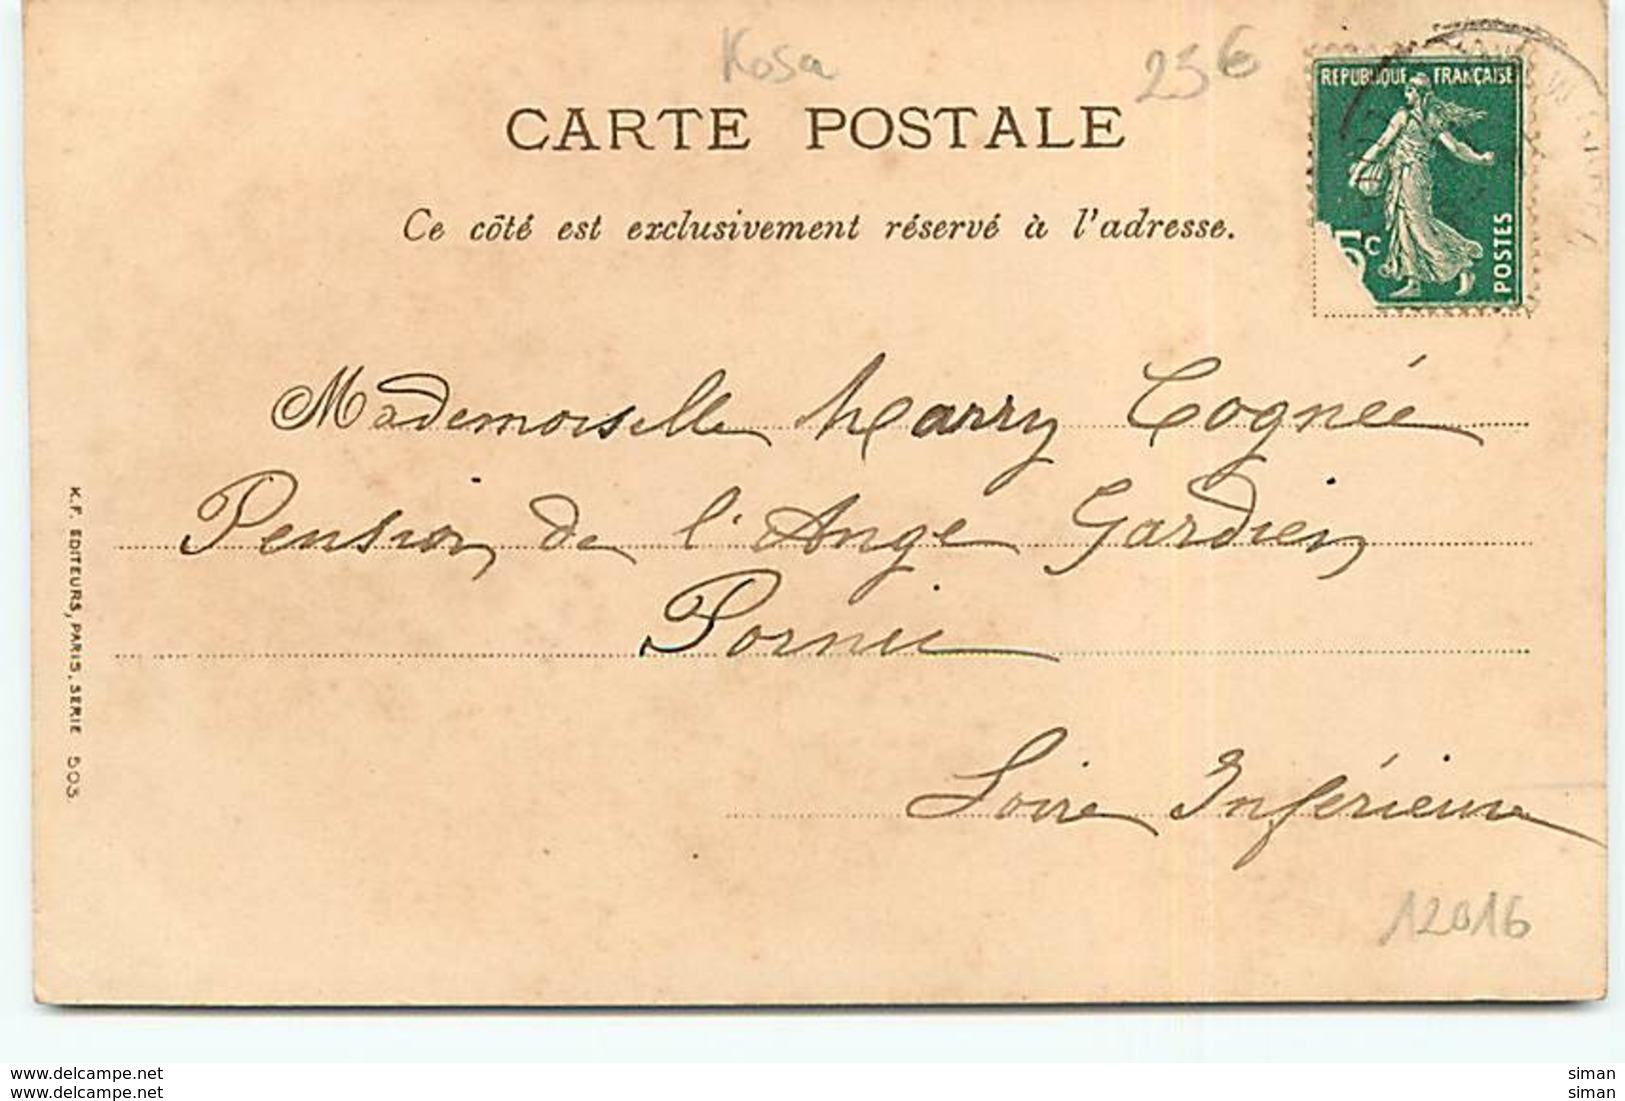 Kosa
25€
CARTE POSTALE
RÉPUBLIQUE FRANÇAISE
Ce côté est exclusivement réservé à l'adresse.
5c
POSTES
Mademoiselle Marry Cognée
Pension de l'Ange Gardien
Pornic
Loire Inférieure
K.F. EDITEURS, PARIS, SERIE 503.
12016
www.delcampe.net
siman
www.delcampe.net
siman